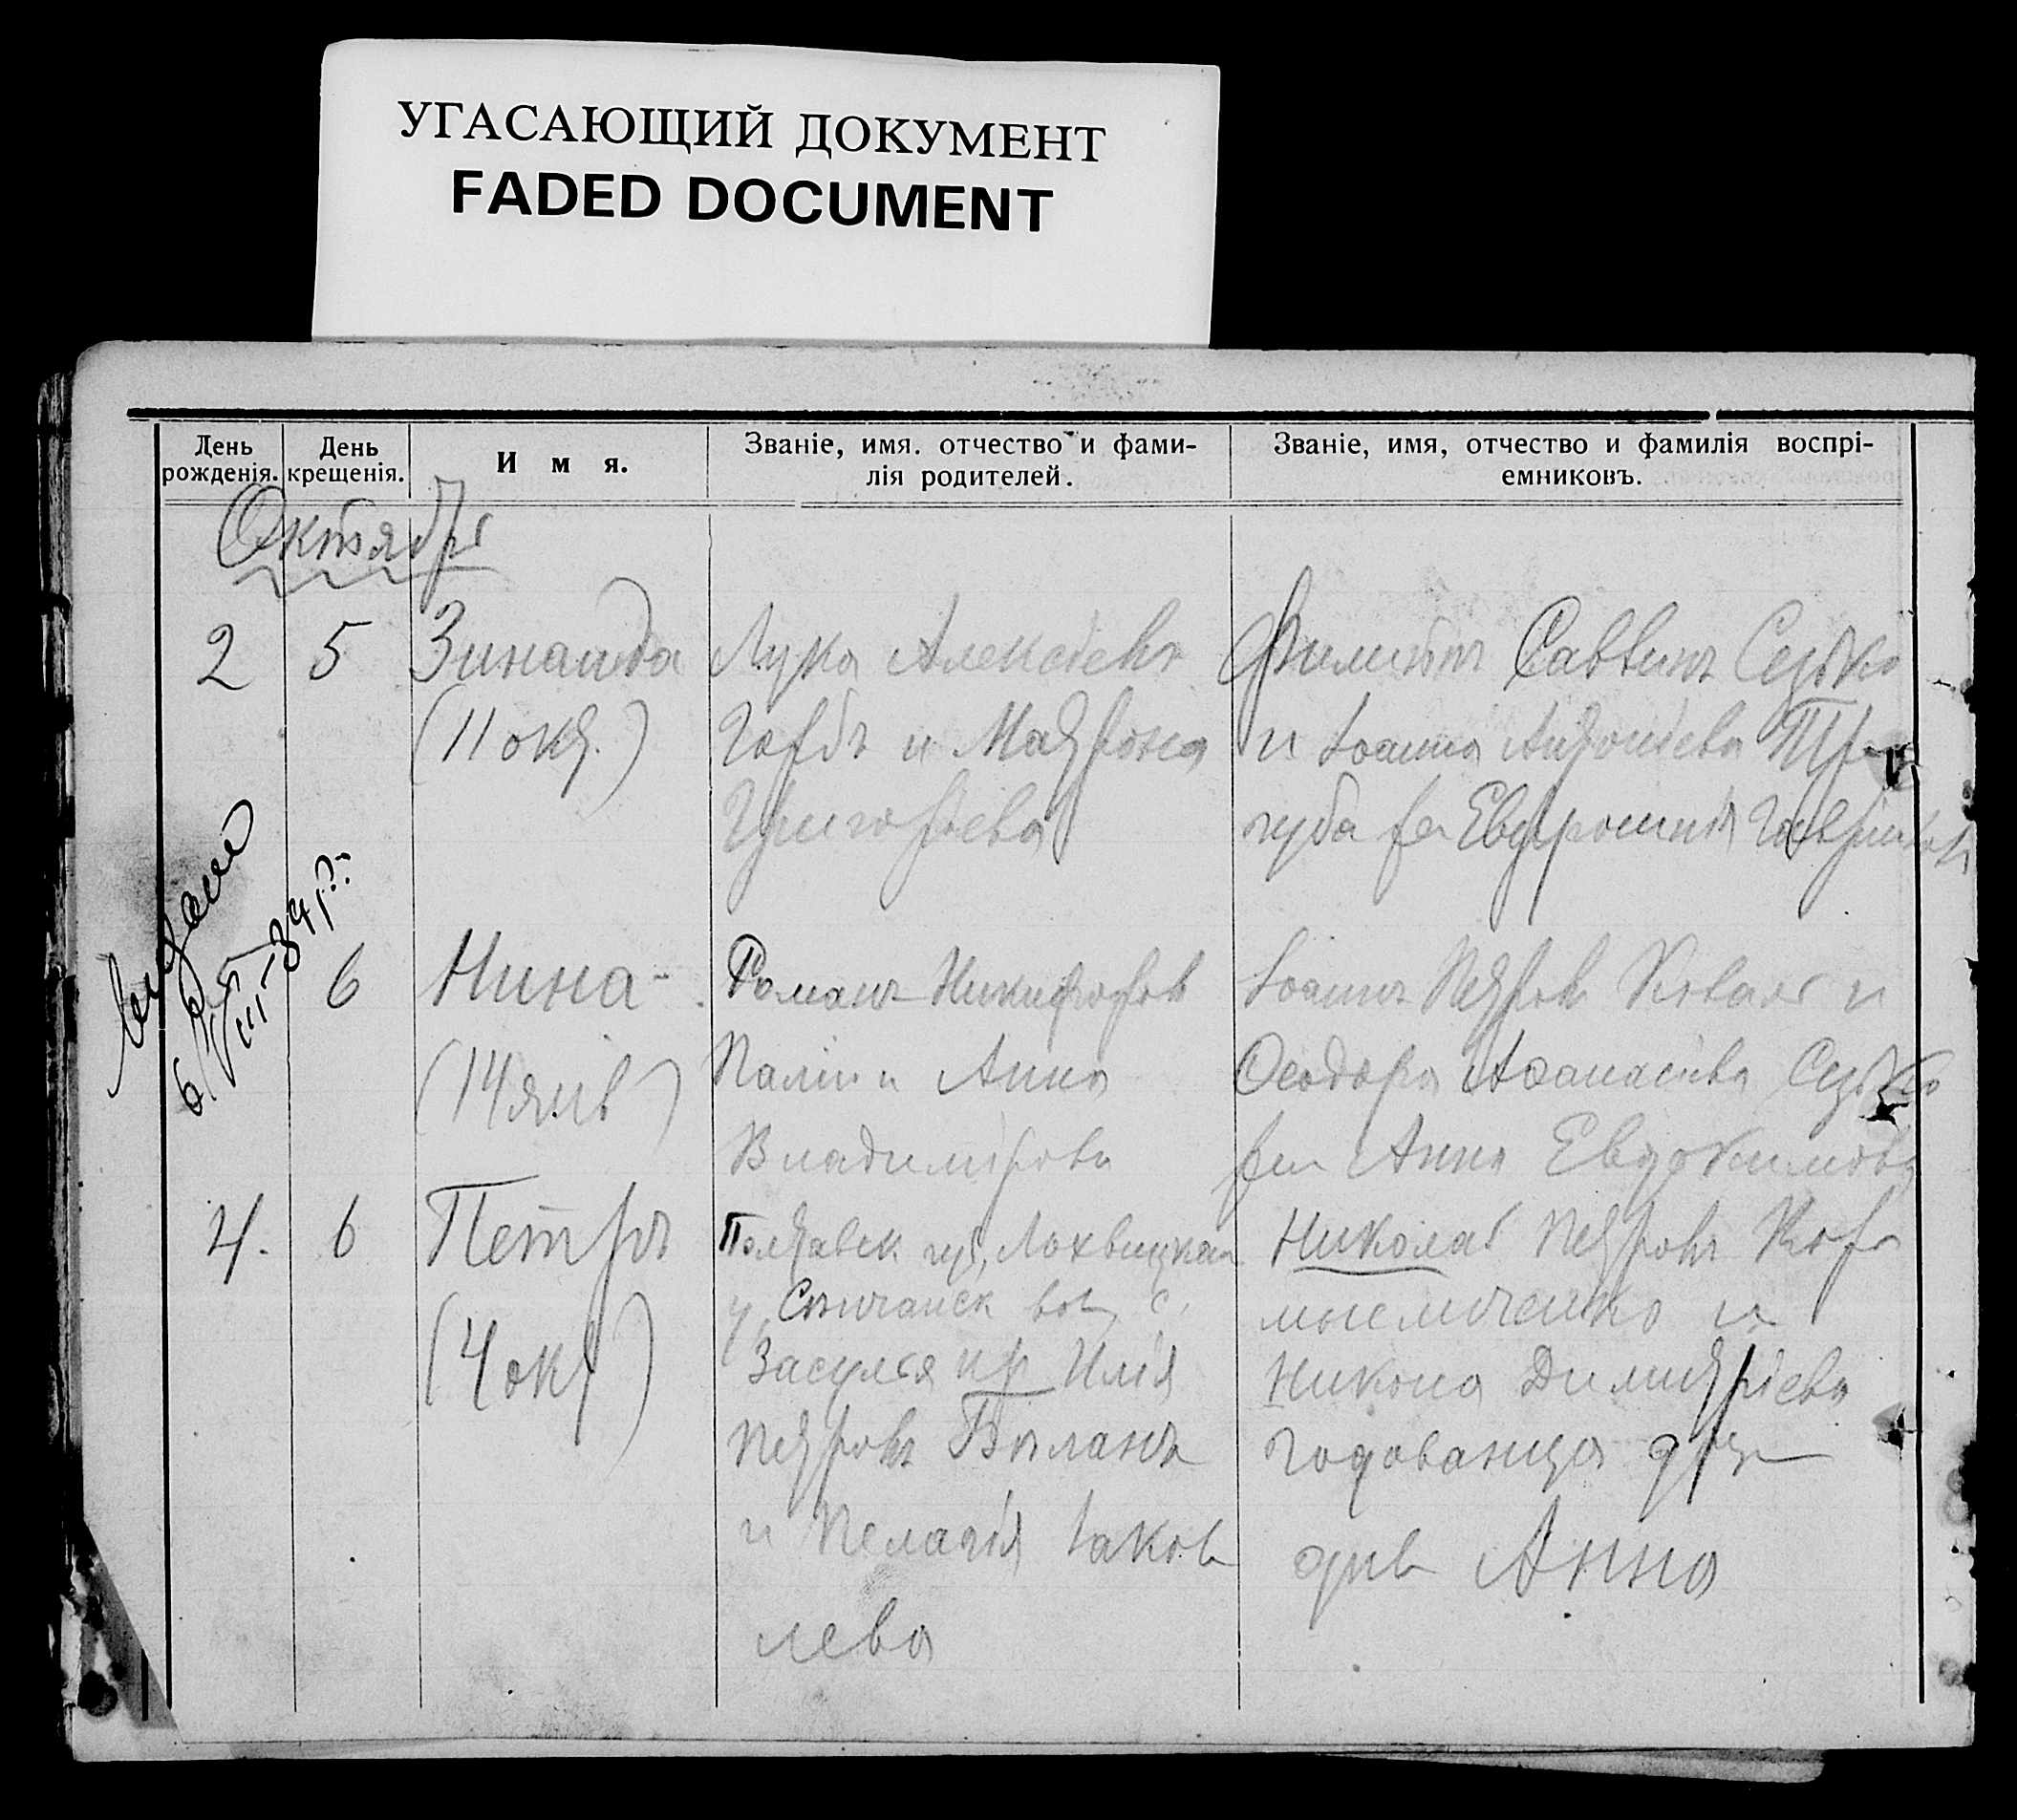 УГАСАЮЩИЙ ДОКУМЕНТ
FADED DOCUMENT
День рожденія.
День крещенія.
И м я.
Званіе, имя. отчество и фами-
лія родителей.
Званіе, имя, отчество и фамилія воспрі-
емниковъ.
Октябрь
2
5
Зинаида
(11 окт.)
Лука Алексѣевъ
Горбъ и Матрона
Григорьева
Филиппъ Саввинъ
и Іоанна Антоніева
губа Евфросинія
6
VIII-34 р.
6
Нина
(14 янв)
Романъ Никифоровъ
Палій и Анна
Владимірова
Іоаннъ Петровъ Коваль и
Ѳеодора Аѳанасіева
Анна Евдокимова
4.
6
Петръ
(4 окт)
Полтавск губ. Лохвицкаго
у, вол, с.
Засулья кр Илія
Петровъ Биланъ
и Пелагія Іаков
лева
Николай Петровъ Кор
и
Димитріева
Годованца
Анна